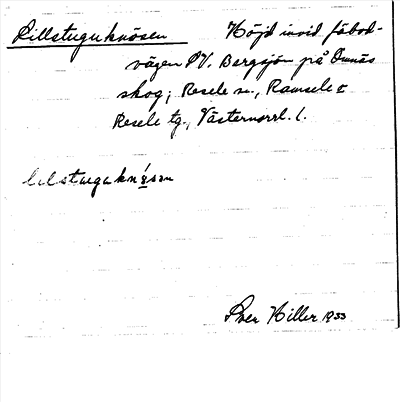 Lillstuguknösen Höjd invid fäbod-
vägen N.V. Bergsjön på Omnäs
skog; Resele sn., Ramsele o
Resele tg., Västernorrl. l.
lilstuguknösen
Sven Hiller 1933